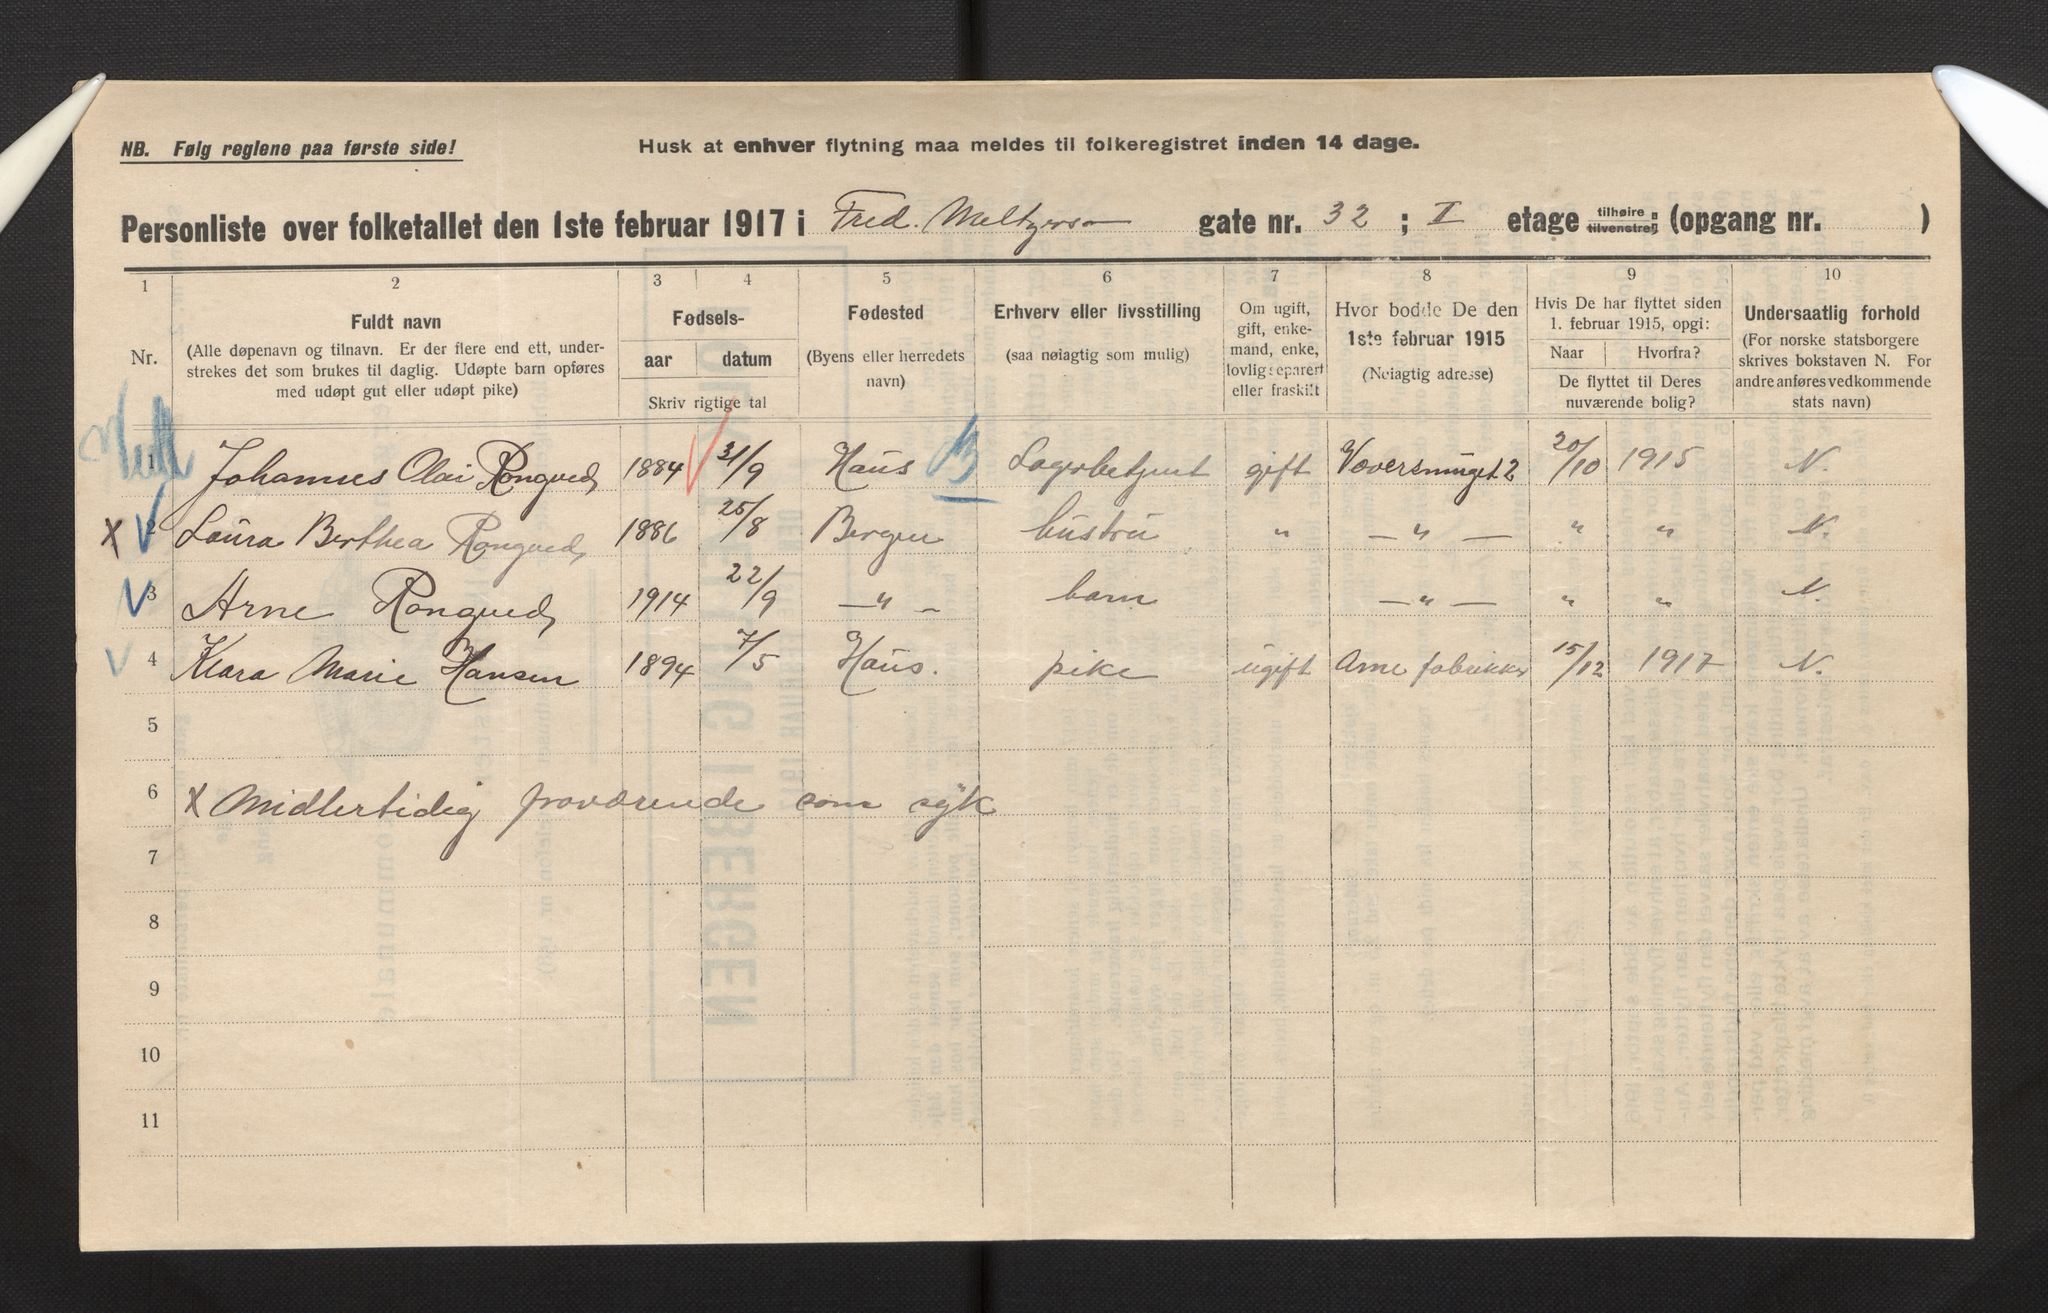 NB. Følg reglene paa første side!
Husk at enhver flytning maa meldes til folkeregistret inden 14 dage.
Personliste over folketallet den 1ste februar 1917 i Fred. Meltzers gate nr. 32 ; II etage tilhøire tilvenstre (opgang nr. )
1 2 3 4 5 6 7 8 9 10
Nr.
Fuldt navn
(Alle døpenavn og tilnavn. Er der flere end ett, under-
strekes det som brukes til daglig. Udøpte barn opføres
med udøpt gut eller udøpt pike)
Fødsels-
aar datum
Skriv rigtige tal
Fødested
(Byens eller herredets
navn)
Erhverv eller livsstilling
(saa nøiagtig som mulig)
Om ugift,
gift, enke-
mand, enke,
lovlig separert
eller fraskilt
Hvor bodde De den
1ste februar 1915
(Nøiagtig adresse)
Hvis De har flyttet siden
1. februar 1915, opgi:
Naar Hvorfra?
De flyttet til Deres
nuværende bolig?
Undersaatlig forhold
(For norske statsborgere
skrives bokstaven N. For
andre anføres vedkommende
stats navn)
1 Johannes Olai Rongved 1884 31/9 Haus Lagerbetjent gift Væversmuget 2 20/10 1915 N.
X 2 Laura Berthea Rongved 1886 25/8 Bergen hustru " — " — " " N.
3 Arne Rongved 1914 22/9 — " — barn — " — " " N.
4 Klara Marie Hansen 1894 7/5 Haus. pike ugift Arne fabrikker 15/12 1917 N.
5
6 X Midlertidig fraværende som syk
7
8
9
10
11